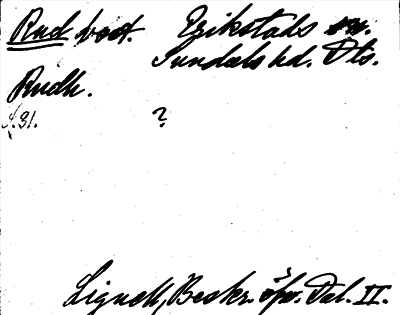 Rud bost. Erikstads sn.
Sundals hd. Dls.
Rudh.
s. 31. ?
Lignell, Beskr. öfv. Dal. II.